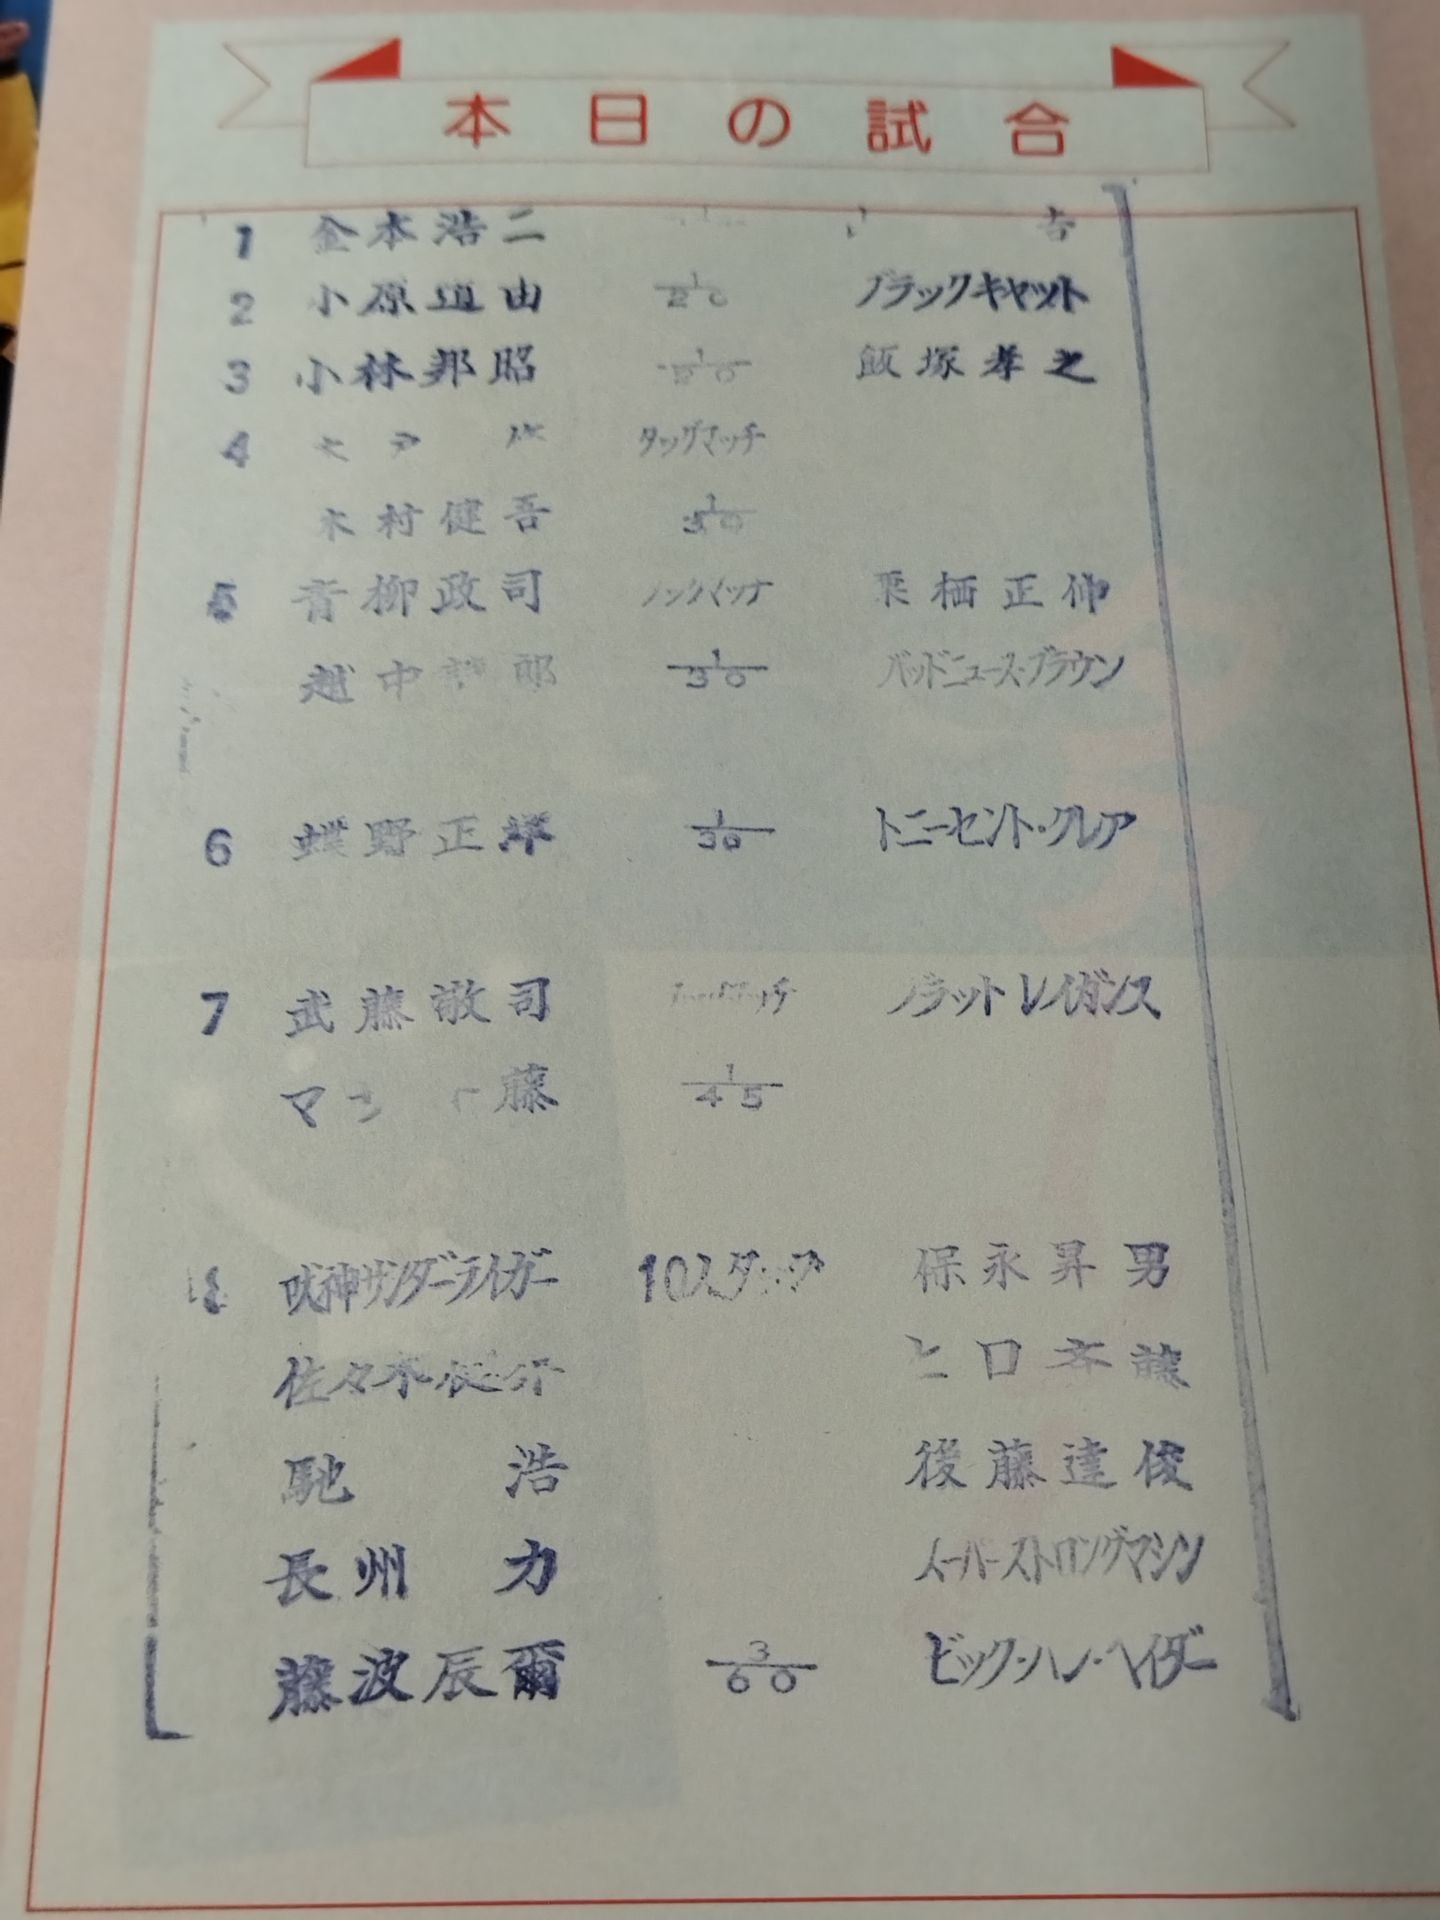 本日の試合
1 金本浩二
2 小原道由 1/20 ブラックキャット
3 小林邦昭 1/20 飯塚孝之
4 タッグマッチ
木村健吾 1/30
5 青柳政司 栗栖正伸
越中 郎 1/30 バッドニュース・ブラウン
6 蝶野正洋 1/30 トニーセント・クレア
7 武藤敬司 ブラットレイガンス
藤 1/45
8 獣神サンダーライガー 10人タッグ 保永昇男
佐々木健介 ヒロ斉藤
馳 浩 後藤達俊
長州 力 スーパーストロングマシン
藤波辰爾 3/60 ビック・バン・ベイダー